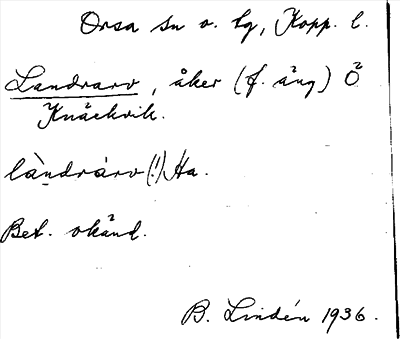 Orsa sn o. tg, Kopp. l.
Landrarv, åker (f. äng) Ö
Knäckvik.
là̀ndrárv (!) Ha.
Bet. okänd.
B. Lindén 1936.